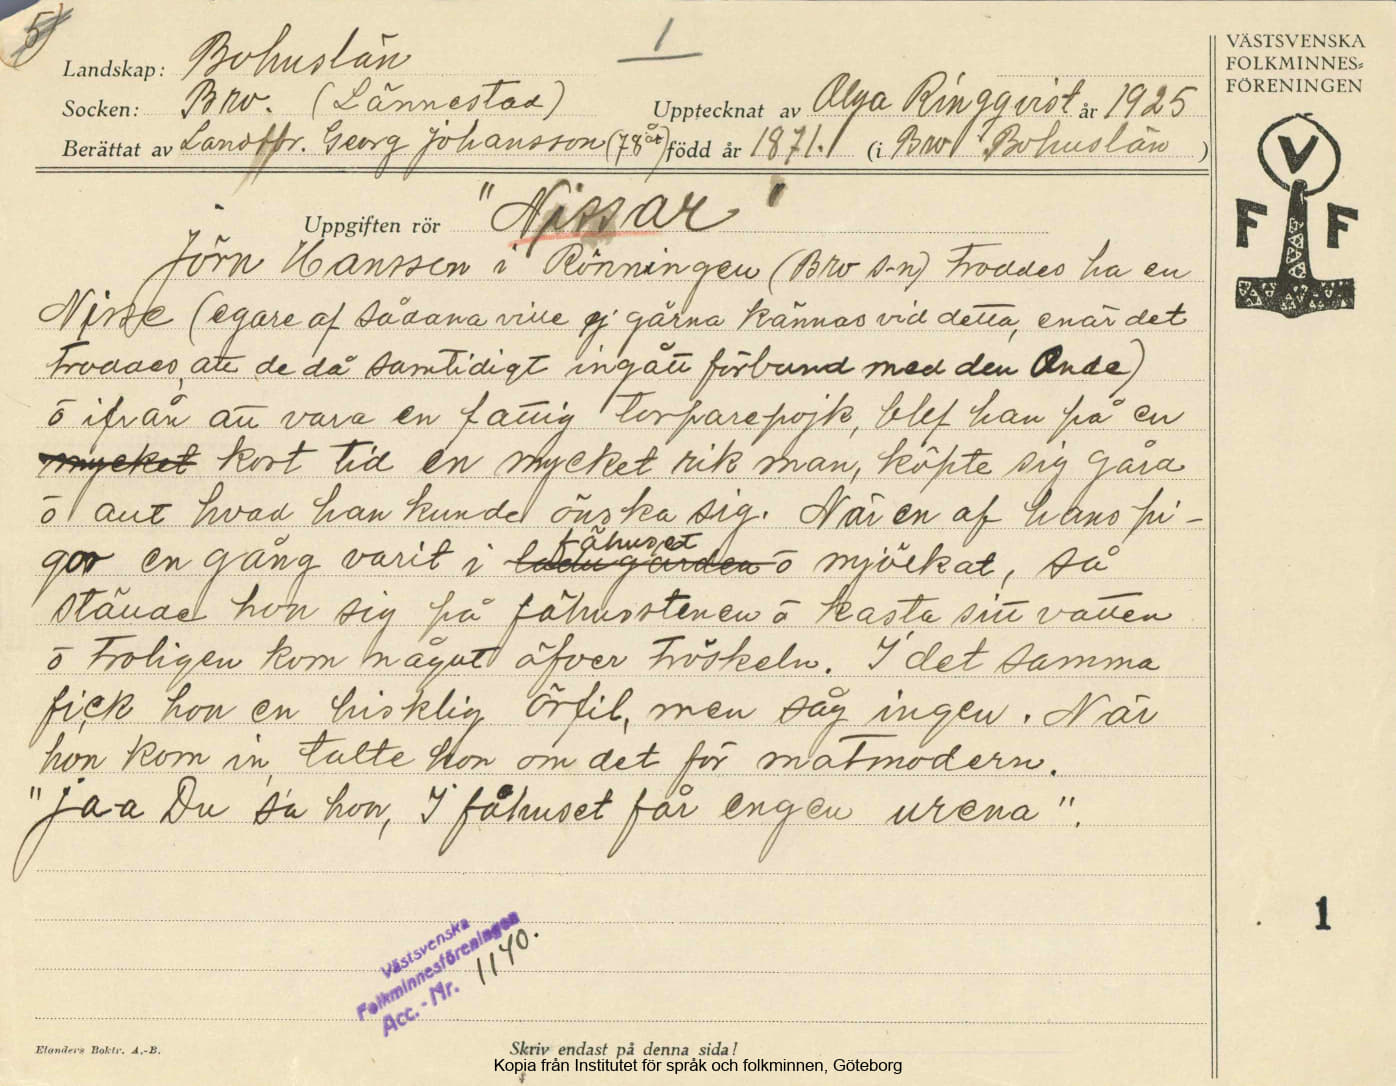 5)
1
Landskap: Bohuslän
Socken: Bro. (Lännestad)
Upptecknat av Olga Ringqvist år 1925
Berättat av Landstpr. Georg Johansson (78 år) född år 1871. (i Bro Bohuslän)
Uppgiften rör "Nissar"
Jörn Hanssen i Rönningen (Bro s-n) troddes ha en
Nisse (egare af sådana ville ej gärna kännas vid detta, enär det
troddes, att de då samtidigt ingått förbund med den Onde)
o ifrån att vara en fattig torparepojk, blef han på en
mycket kort tid en mycket rik man, köpte sig gård
o allt hvad han kunde önska sig. När en af hans pi-
gor en gång varit i ladugården fähuset o mjölkat, så
ställde hon sig på fähusstenen o kasta sitt vatten
o troligen kom något öfver tröskeln. I det samma
fick hon en hisklig örfil, men såg ingen. När
hon kom in talte hon om det för matmodern.
"Ja-a Du sa hon, I fähuset får engen urena".
Västsvenska
Folkminnesföreningen
Acc.-Nr. 1140.
Elanders Boktr. A.-B.
Skriv endast på denna sida!
Kopia från Institutet för språk och folkminnen, Göteborg
VÄSTSVENSKA
FOLKMINNES=
FÖRENINGEN
V
F F
1